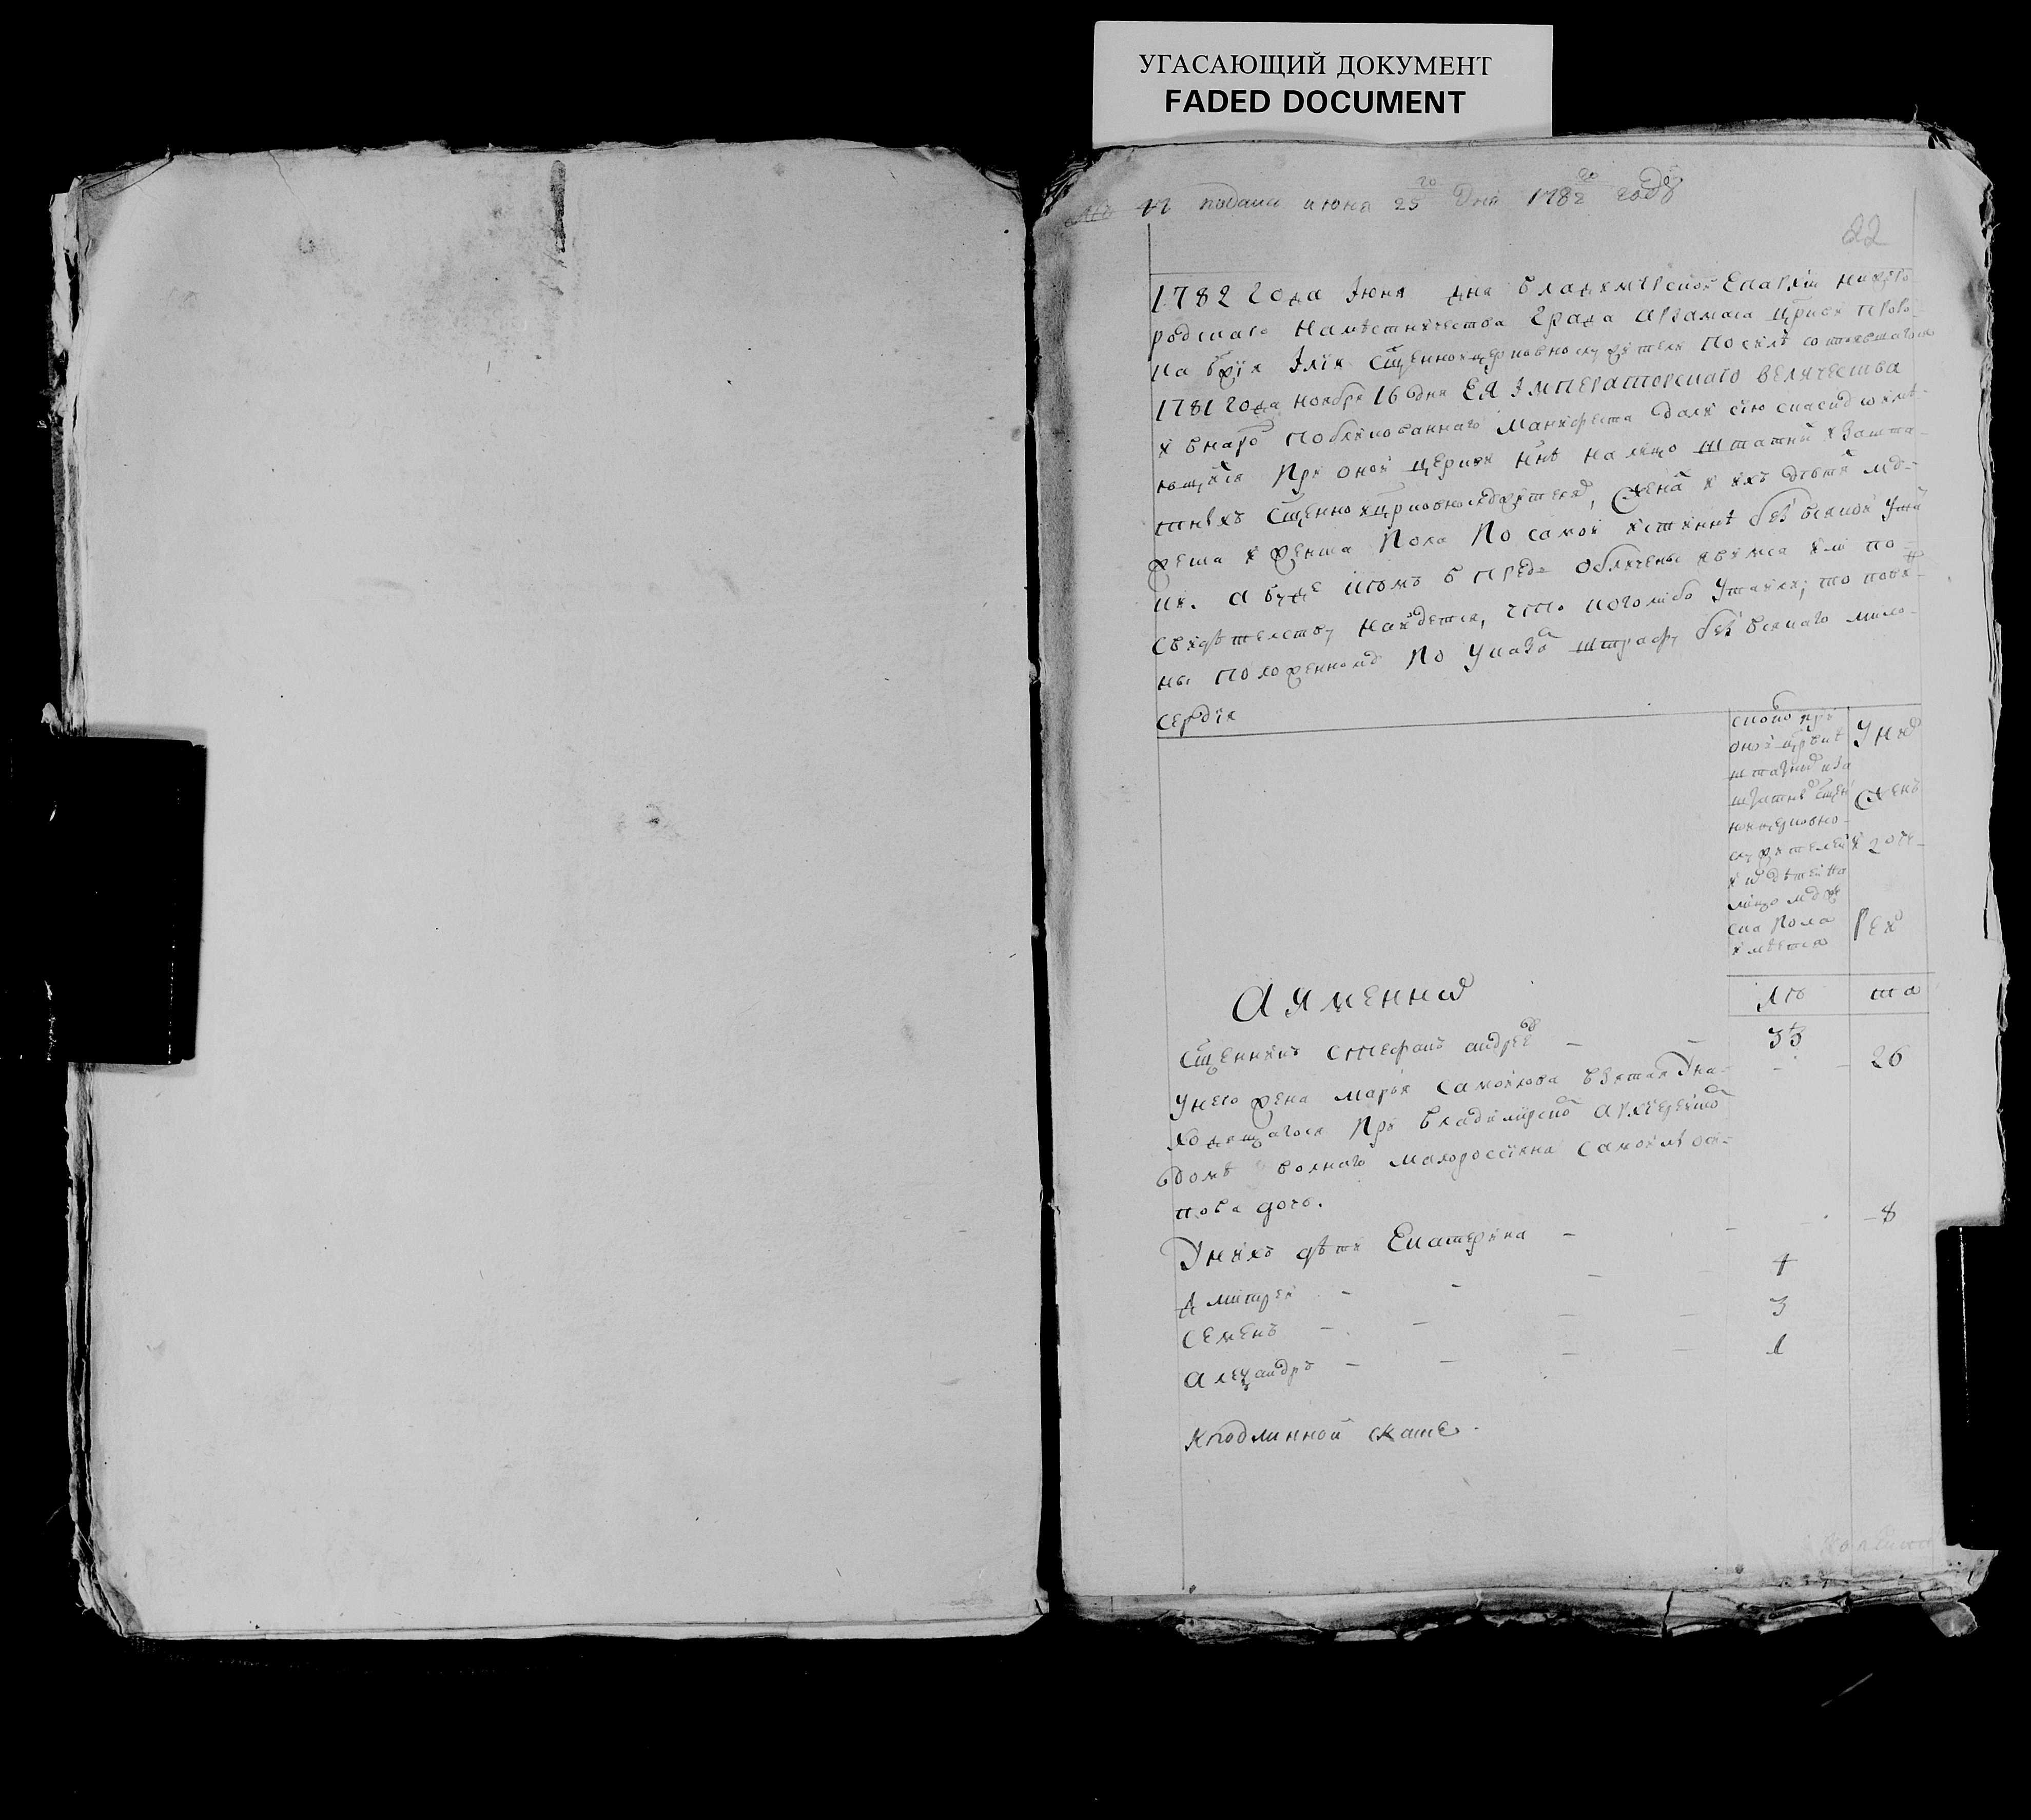 УГАСАЮЩИЙ ДОКУМЕНТ
FADED DOCUMENT
подана июня 25го дня 1782го году
22
1782 года Іюня дня владимерской Епархіи нижего
родскаго намѣстничества града арзамаса церкви проро
ка бжія Иліи сщенно и церковнослужители по силѣ состоявшагося
1781 года ноября 16 дня ЕЯ ІМПЕРАТОРСКАГО ВЕЛИЧЕСТВА
и в наро публикованнаго манифеста дали сию скаску о имѣ-
ющихся при оной церкви нне на лицо штатны и зашта-
тныхъ сщенно и црковнослужителях, жена и ихъ дѣтя му-
жеска и женска пола по самой истиннѣ без всякой ута
ки. а буде комъ впредь обличены явимся или по
свидѣтелству найдется, что кого либо утаили; то пови-
ны положенному по указо штрафу без всякаго мило-
сердия
сколко при
оной црквѣ
штатных и за
штатных сщен
но и церковно-
служителей
и их дѣтей на
лицо муже
ска пола
имѣется
У них
женъ
и доче-
рей
лѣ
та
А Имянно
Сщенникъ стефанъ андреев
33
у него жена марья самойлова взятая у на-
26
ходящагося при владимирско архиерейско
домѣ волнаго малороссиянина самойлы оси-
пова дочь.
У нихъ дѣти Екатерина
8
дмитрей
4
семенъ
3
алеѯандръ
1
К подлинной скаске